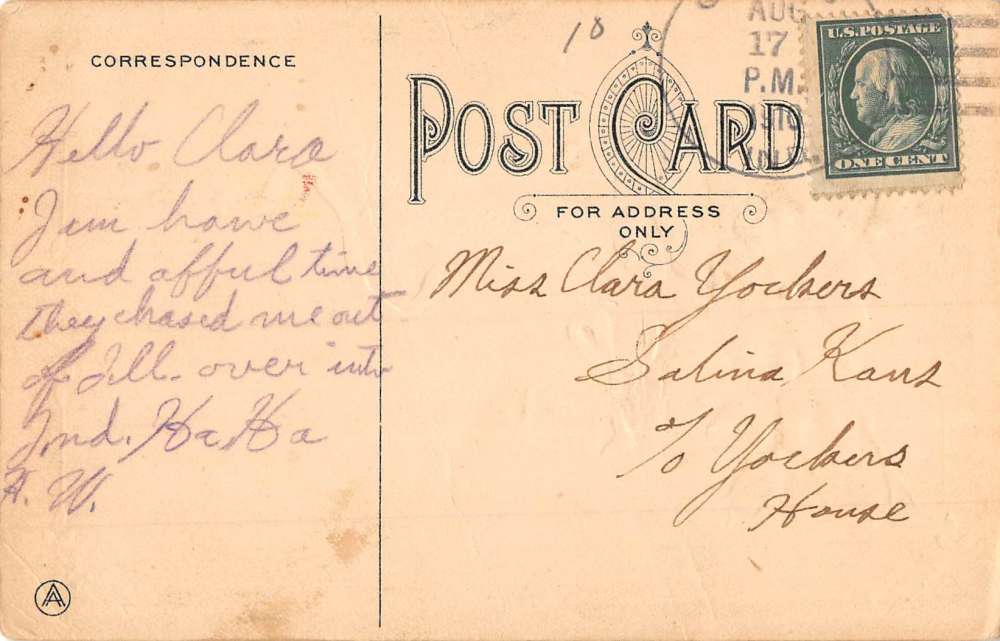 CORRESPONDENCE
Hello Clara
I im have
and afful time
they chased me out
of Ill. over into
Ind. Ha Ha
A. W.
POST CARD
FOR ADDRESS
ONLY
AUG
17
P.M.
U.S. POSTAGE
ONE CENT
18
Miss Clara Yockers
Salina Kans
To Yockers
House